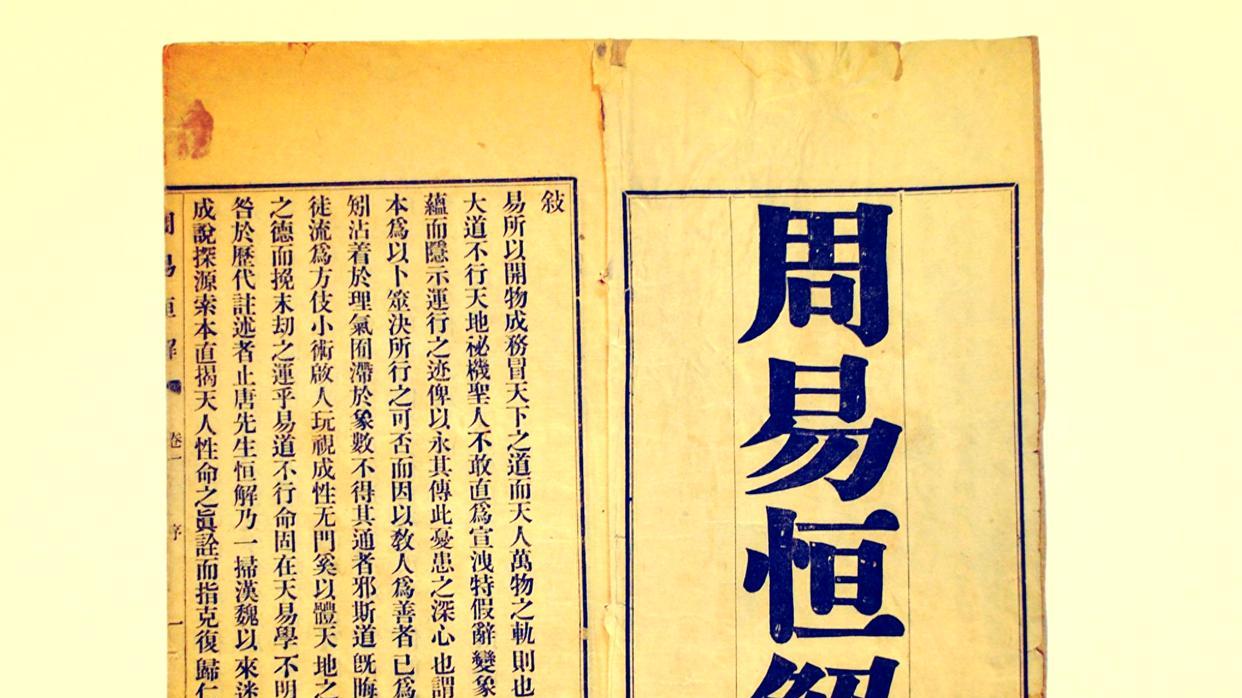 周易恒解
敍
易所以開物成務冒天下之道而天人萬物之軌則也
大道不行天地祕機聖人不敢直爲宣洩特假辭變象
蘊而隱示運行之迹俾以永其傳此憂患之深心也謂
本爲以卜筮決所行之可否而因以敎人爲善者已爲
矧沾着於理氣囿滯於象數不得其通者邪斯道旣晦
徒流爲方伎小術啟人玩視成性无門奚以體天地之
之德而挽末劫之運乎易道不行命固在天易學不明
咎於歷代註述者止唐先生恒解乃一掃漢魏以來迷
成說探源索本直揭天人性命之眞詮而指克復歸仁
周易恒解 卷一 序 一